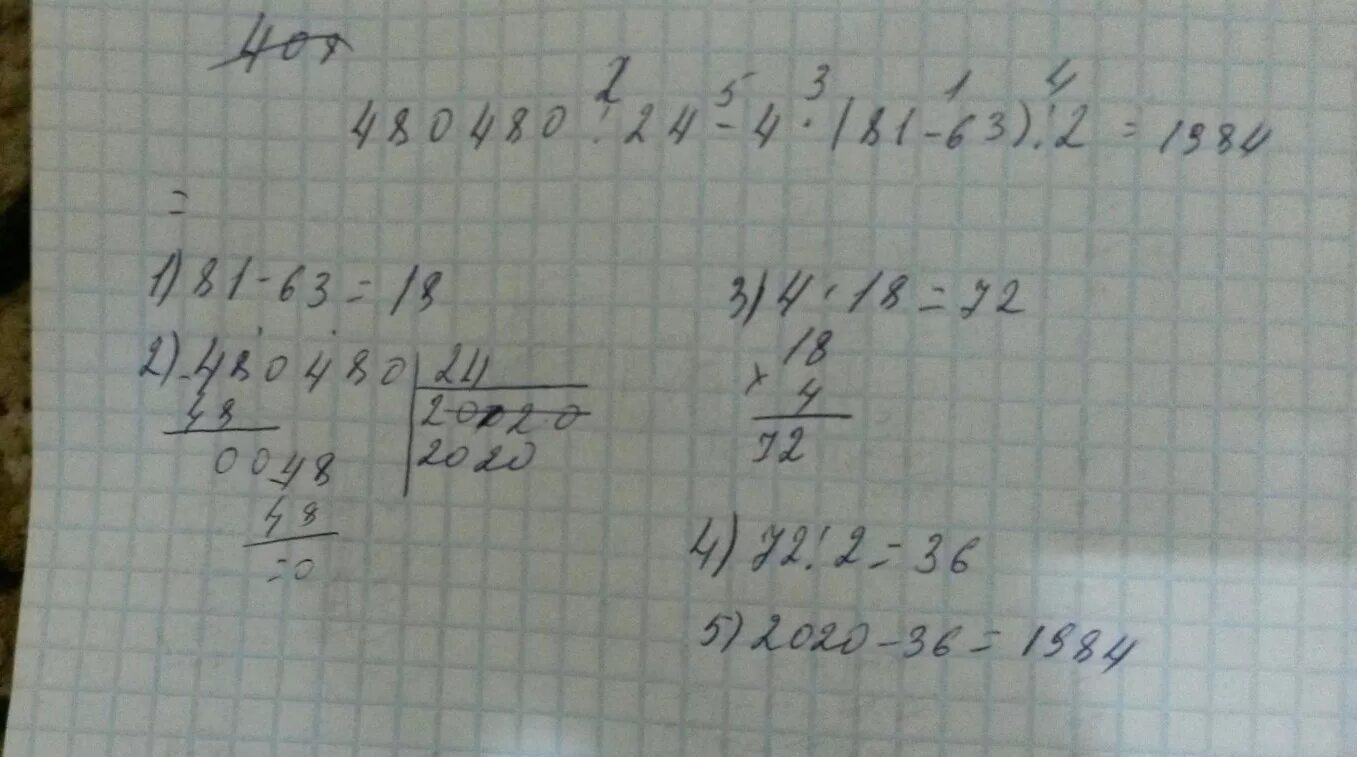 40x
2 5 3 1 4
480480 : 24 - 4 · (81-63) : 2 = 1984
=
1) 81-63=18
2) 480480 | 24
48 20020
0048 2020
48
=0
3) 4 · 18 = 72
18
× 4
72
4) 72:2=36
5) 2020-36=1984